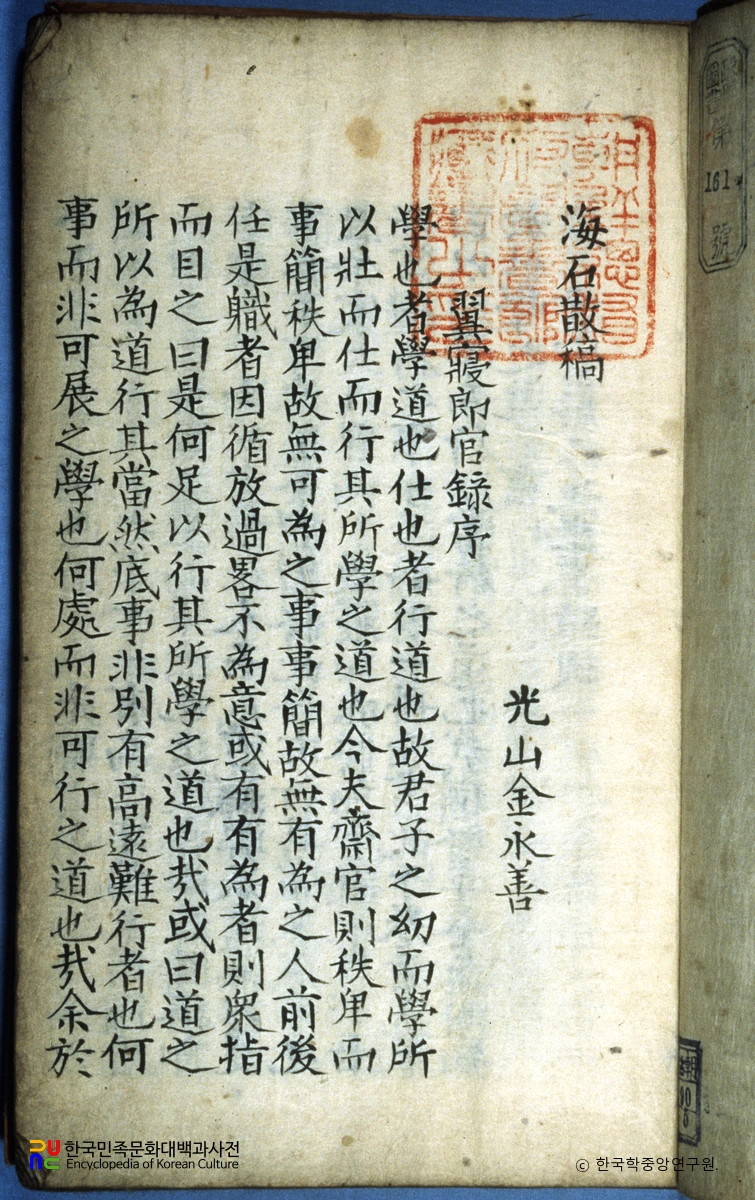 海石散稿
光山金永善
翼寢郎官錄序
學也者學道也仕也者行道也故君子之幼而學所
以壯而仕而行其所學之道也今夫齋官則秩卑而
事簡秩卑故無可為之事事簡故無有為之人前後
任是軄者因循放過畧不為意或有有為者則衆指
而目之曰是何足以行其所學之道也㢤或曰道之
所以為道行其當然底事非別有高遠難行者也何
事而非可展之學也何處而非可行之道也㢤余於
第
161
號
한국민족문화대백과사전
Encyclopedia of Korean Culture
© 한국학중앙연구원.